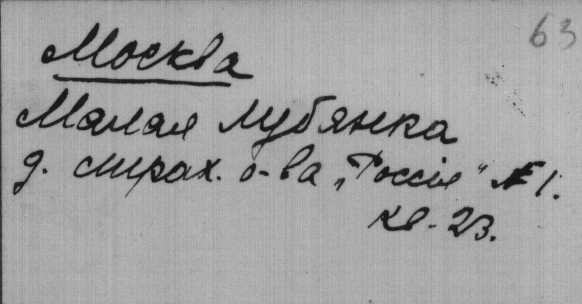 63
Москва
Малая Лубянка
д. страх. о-ва „Россія“ № 1.
кв. 23.